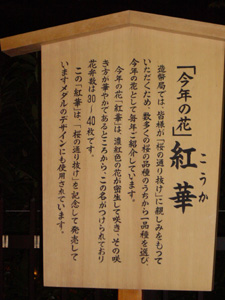 「今年の花」紅華
こうか
造幣局では、皆様が「桜の通り抜け」に親しみをもって
いただくため、数多くの桜の品種のうちから一品種を選び、
今年の花として毎年ご紹介しています。
今年の花「紅華」は、濃紅色の花が密生して咲き、その咲
き方が華やかであるところから、この名がつけられており
花弁数は30〜40枚です。
この「紅華」は、「桜の通り抜け」を記念して発売して
いますメダルのデザインにも使用されています。